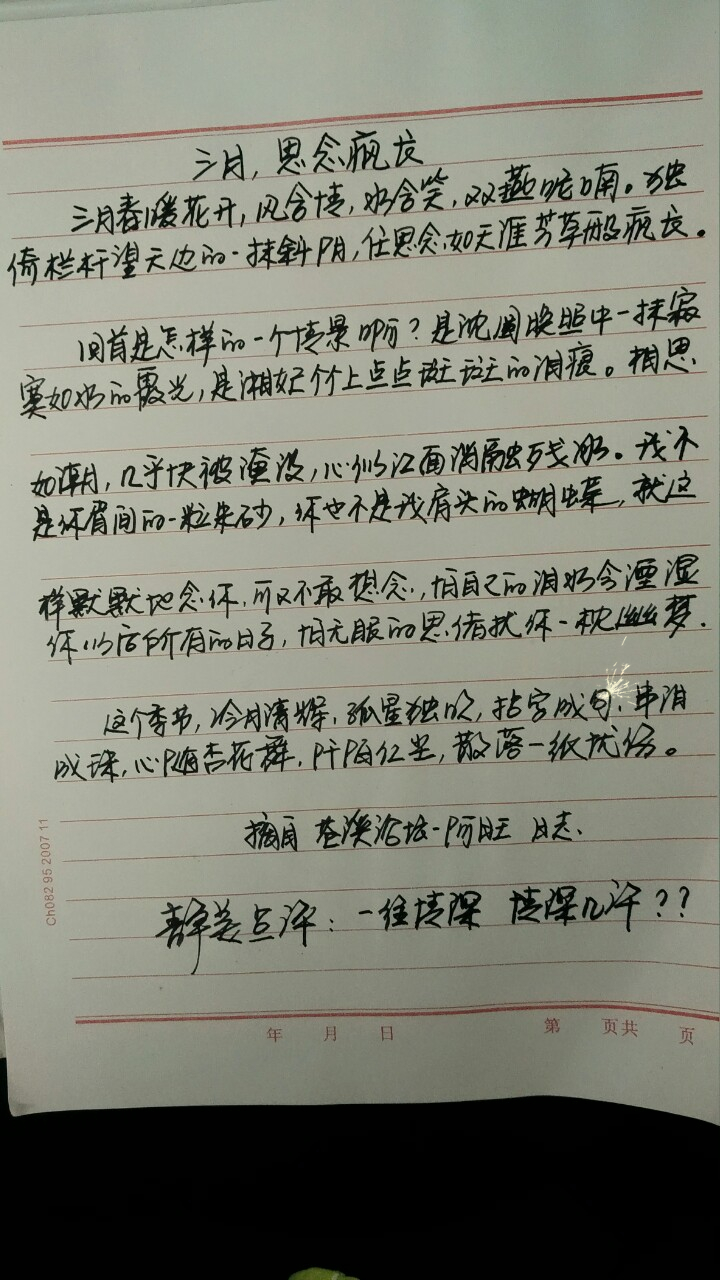 三月，思念疯长
三月春暖花开，风含情，水含笑，双燕呢喃。独
倚栏杆望天边的一抹斜阴，任思念如天涯芳草般疯长。
回首是怎样的一个情景啊？是沈园晚照中一抹寂
寞如水的霞光，是湘妃竹上点点斑斑的泪痕。相思
如潮，几乎快被淹没，心似江面消融残冰。我不
是你眉间的一粒朱砂，你也不是我肩头的蝴蝶，就这
样默默地念你，可又不敢想念，怕自己的泪水会湮湿
你以后所有的日子，怕无眠的思绪扰你一枕幽梦.
这个季节，冷月清辉，孤星独吹，拈字成句，串泪
成珠，心陌杏花舞，阡陌红尘，散落一纸忧伤。
摘自 苍溪论坛-阿旺 日志.
静美点评：一往情深 情深几许？？
Ch082 95 2007 11
年 月 日 第 页共 页